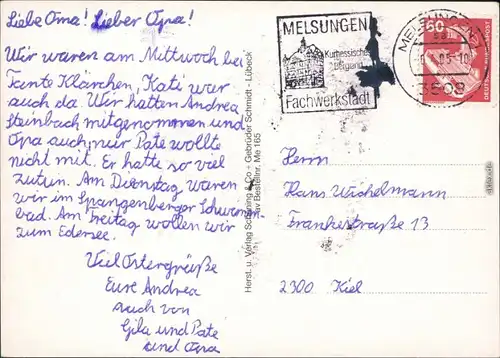 Liebe Oma! Lieber Opa!
Wir waren am Mittwoch bei
Tante Klärchen, Kati war
auch da. Wir hatten Andrea
Steinbach mitgenommen und
Opa auch, nur Pate wollte
nicht mit. Er hatte so viel
zutun. Am Dienstag waren
wir im Spangenberger Schwimm-
bad. Am Freitag wollen wir
zum Edersee.
Viel Ostergrüße
Eure Andrea
auch von
Gila und Pate
und Opa
Herst. u. Verlag Schöning & Co + Gebrüder Schmidt · Lübeck
Bestellnr. Me 165
MELSUNGEN
Kurhessisches
Bergland
Fachwerkstadt
MELSUNGEN 1
3508
60
DEUTSCHE BUNDESPOST
Herrn
Hans Wichelmann
Franckestraße 13
2300 Kiel